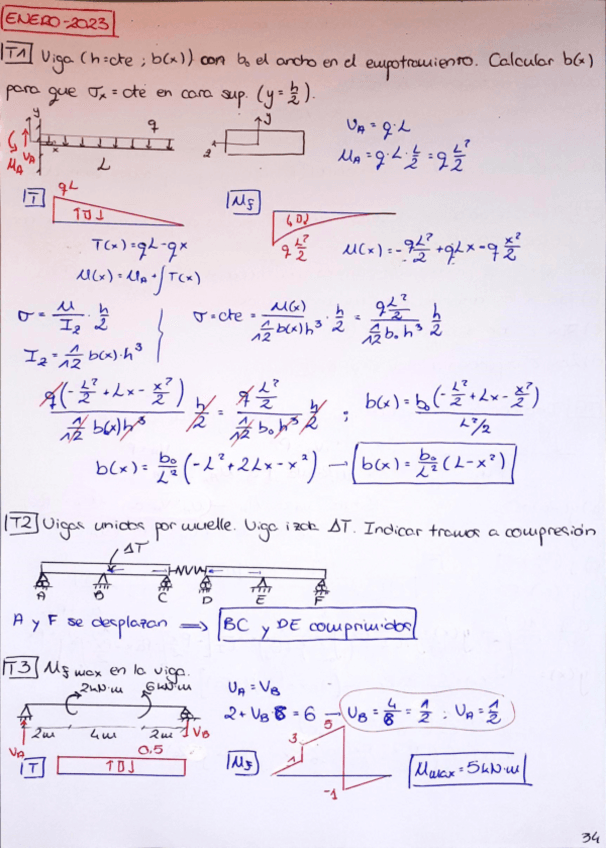 ENERO-2023
T1 Viga (h=cte ; b(x)) con b₀ el ancho en el empotramiento. Calcular b(x)
para que σₓ = cte en cara sup. (y = h/2).
y q y
x z
M_A V_A L
V_A = q·L
M_A = q·L·L/2 = q L²/2
T qL M_f
q L²/2
T(x) = qL - qx
M(x) = M_A + ∫T(x)
M(x) = -qL²/2 + qLx - q x²/2
σ = M/I_z · h/2
I_z = 1/12 b(x)·h³
σ = cte = M(x)/(1/12 b(x)h³) · h/2 = (qL²/2)/(1/12 b₀h³) h/2
q(-L²/2 + Lx - x²/2)/(1/12 b(x)h³) h/2 = (q L²/2)/(1/12 b₀h³) h/2 ; b(x) = b₀(-L²/2 + Lx - x²/2)/(L²/2)
b(x) = b₀/L² (-L² + 2Lx - x²) → b(x) = b₀/L² (L-x²)
T2 Vigas unidas por muelle. Viga izda ΔT. Indicar tramos a compresión
ΔT
A B C D E F
A y F se desplazan ⟹ BC y DE comprimidos
T3 M_f max en la viga.
2kN·m 6kN·m
V_A 2m 4m 2m V_B
V_A = V_B
2 + V_B 8 = 6 → V_B = 4/8 = 1/2 ; V_A = 1/2
T 0,5
M_f 1 3 5 -1
M_max = 5kN·m
34